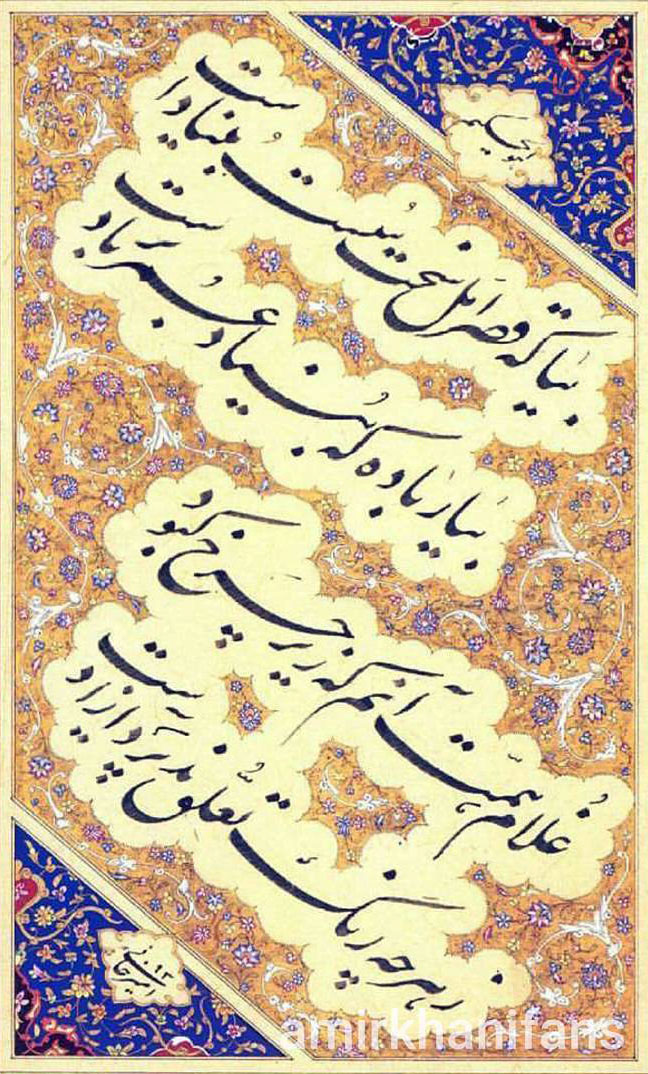 هو الحکیم
بیا که قصر امل سخت سست بنیاد است
بیار باده که بنیاد عمر بر بادست
غلام همت آنم که زیر چرخ کبود
ز هر چه رنگ تعلق پذیرد آزادست
امیرخانی
amirkhanifans